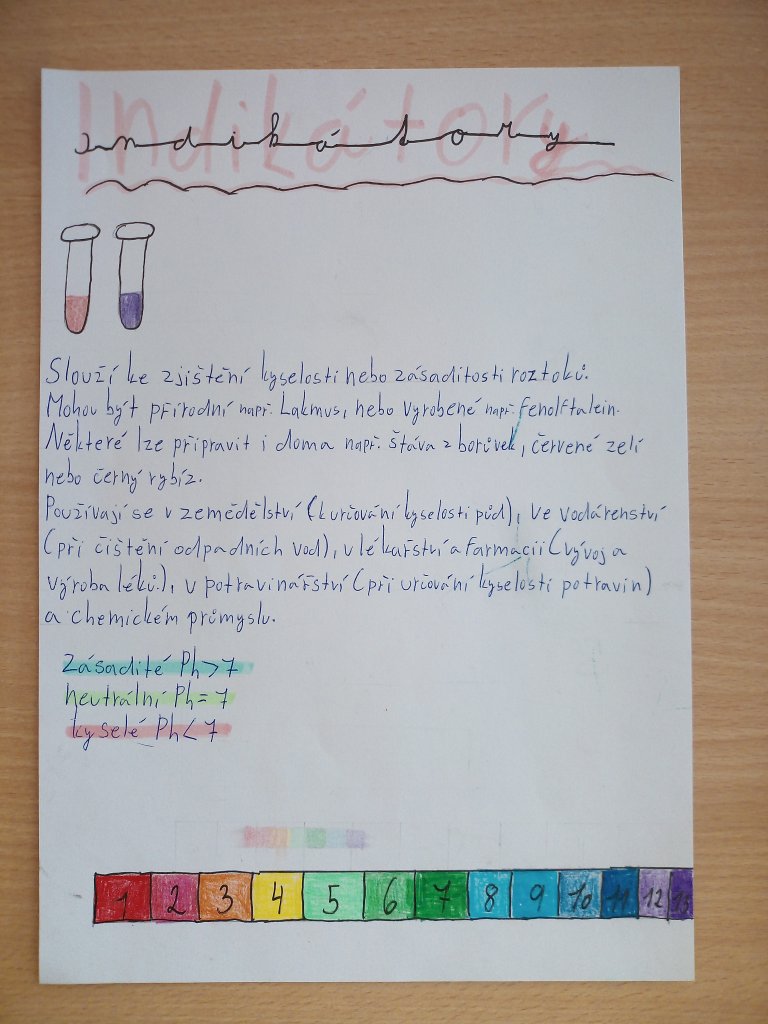 Indikátory
Slouží ke zjištění kyselosti nebo zásaditosti roztoků.
Mohou být přírodní např. Lakmus, nebo vyrobené např. fenolftalein.
Některé lze připravit i doma např. šťáva z borůvek, červené zelí
nebo černý rybíz.
Používají se v zemědělství (k určování kyselosti půd), ve vodárenství
(při čištění odpadních vod), v lékařství a farmacii (vývoj a
výroba léků), v potravinářství (při určování kyselosti potravin)
a chemickém průmyslu.
Zásadité Ph>7
neutrální Ph=7
kyselé Ph<7
1 2 3 4 5 6 7 8 9 10 11 12 13